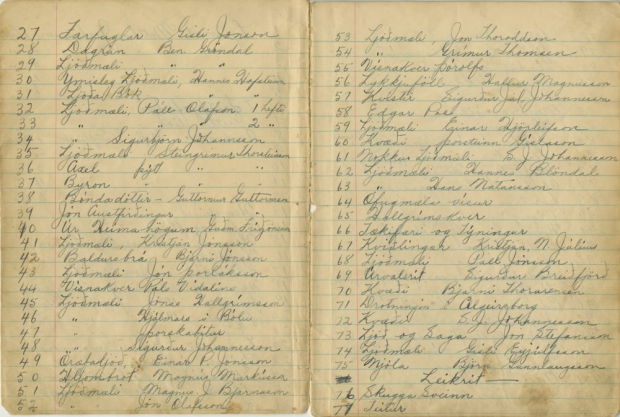 27 Farfuglar Gísli Jónson
28 Dagrún Ben Gröndal
29 Ljóðmæli " "
30 Ýmisleg Ljóðmæli, Hannes Hafstein
31 Ljóða Bók " "
32 Ljóðmæli, Páll Olafson 1 hefti
33 " " " 2 "
34 " Sigurbjörn Jóhannsson
35 Ljóðmæli Steingrimur Thorsteinson
36 Axel þýtt " "
37 Byron " " "
38 Bóndadóttir - Guttormur Guttormson
39 Jón Austfirðingur " "
40 Úr Heimahögum Guðm Friðjónson
41 Ljóðmæli, Kristján Jónsson
42 Baldursbrá, Bjarni Jónsson
43 Ljóðmæli Jón Þorláksson
44 Visnakver Páls Vidalins
45 Ljóðmæli Jonas Hallgrimsson
46 " Hjálmars í Bólu
47 "
48 " Sigurður Johannesson
49 Einar P. Jonsson
50 Magnus Markusson
51 Ljóðmæli Magnus J Bjarnason
52 " Jón Olafsson
53 Ljóðmæli, Jón Thoroddsen
54 " Grímur Thomsen
55 Visnakver Þórólfs
56 Hallur Magnusson
57 Kvistir Sigurður Júl, Jóhannesson
58 Edgar Poe
59 Ljóðmæli Einar Hjörleifson
60 Kvæði Þorsteinn Gislason
61 Nokkur Ljóðmæli S. J. Johannesson
62 Ljóðmæli Hannes Blöndal
63 " Hans Natansson
64 Öfugmæla visur
65 Hallgrimskver
66 Tækifæri og Týningur
67 Kviðlingar Kristján, N. Júlíus
68 Ljóðmæli Páll Jónsson
69 Sigurður Breiðfjörd
70 Kvæði Bjarni Thorarensen
71 Drotningin í Algeirsborg
72 Kvæði S. J. Johannesson
73 Ljóð og Saga Jón Stefánsson
74 Ljóðmæli Gísli Eyjólfsson
75 Mjöll Björn Gunnlaugsson
Leikrit —
76 Skugga Sveinn
77